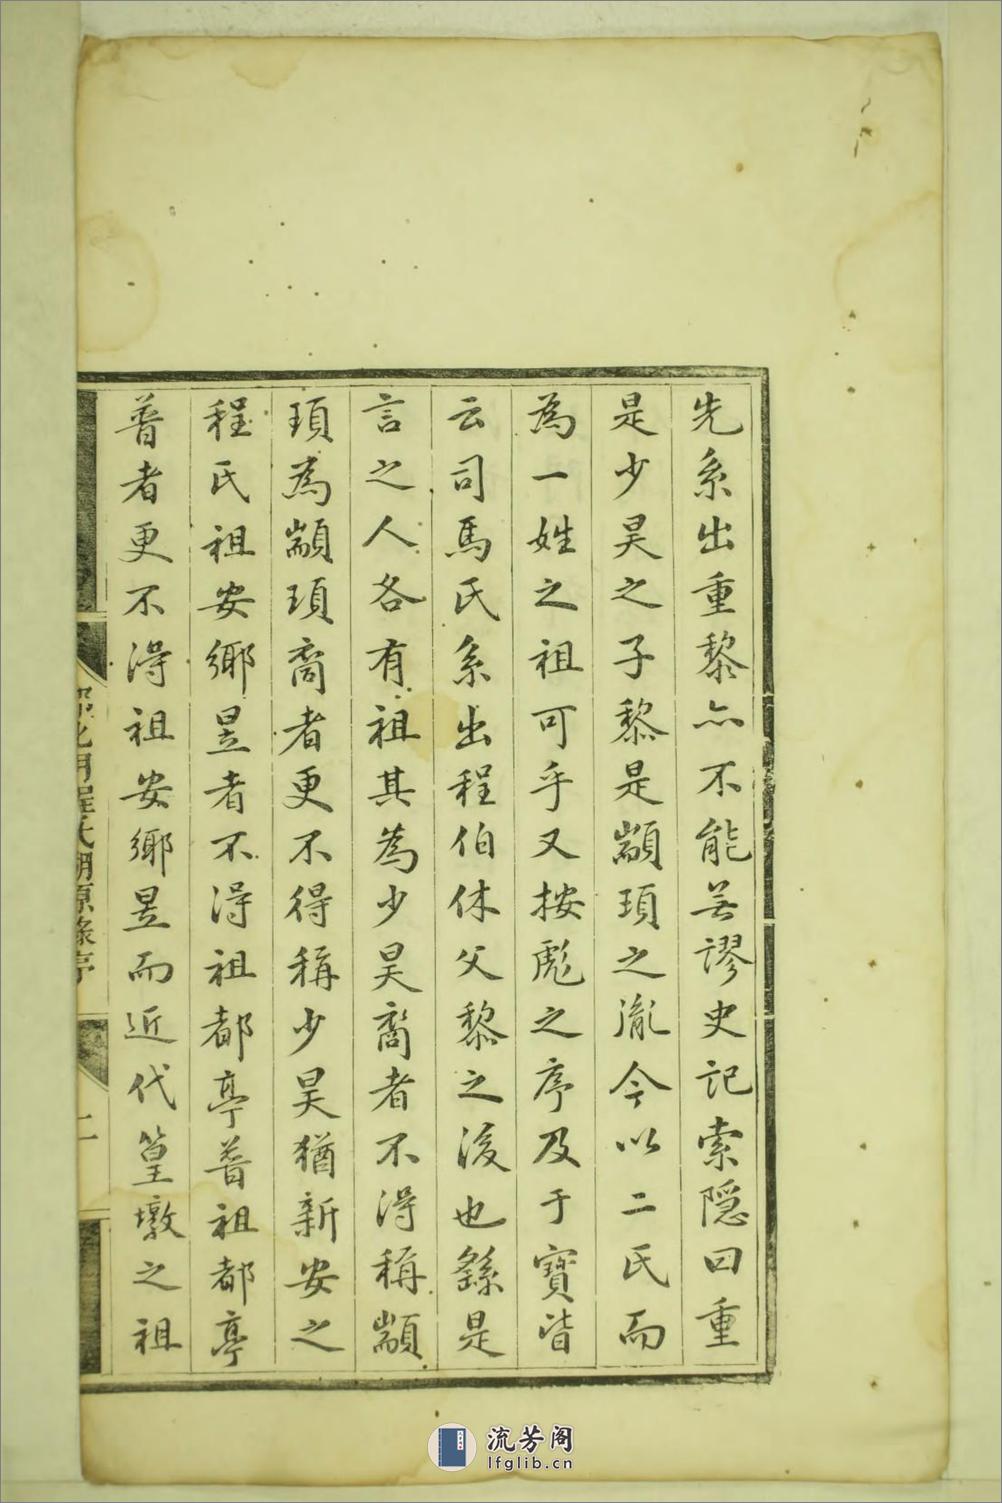 先系出重黎亦不能無謬史記索隱曰重
是少昊之子黎是顓頊之胤今以二氏而
為一姓之祖可乎又按彪之序及于寶皆
云司馬氏系出程伯休父黎之後也繇是
言之人各有祖其為少昊裔者不得稱顓
頊為顓頊裔者更不得稱少昊猶新安之
程氏祖安鄉昱者不得祖都亭普祖都亭
普者更不得祖安鄉昱而近代篁墩之祖
程氏溯原錄序
二
流芳阁
lfglib.cn